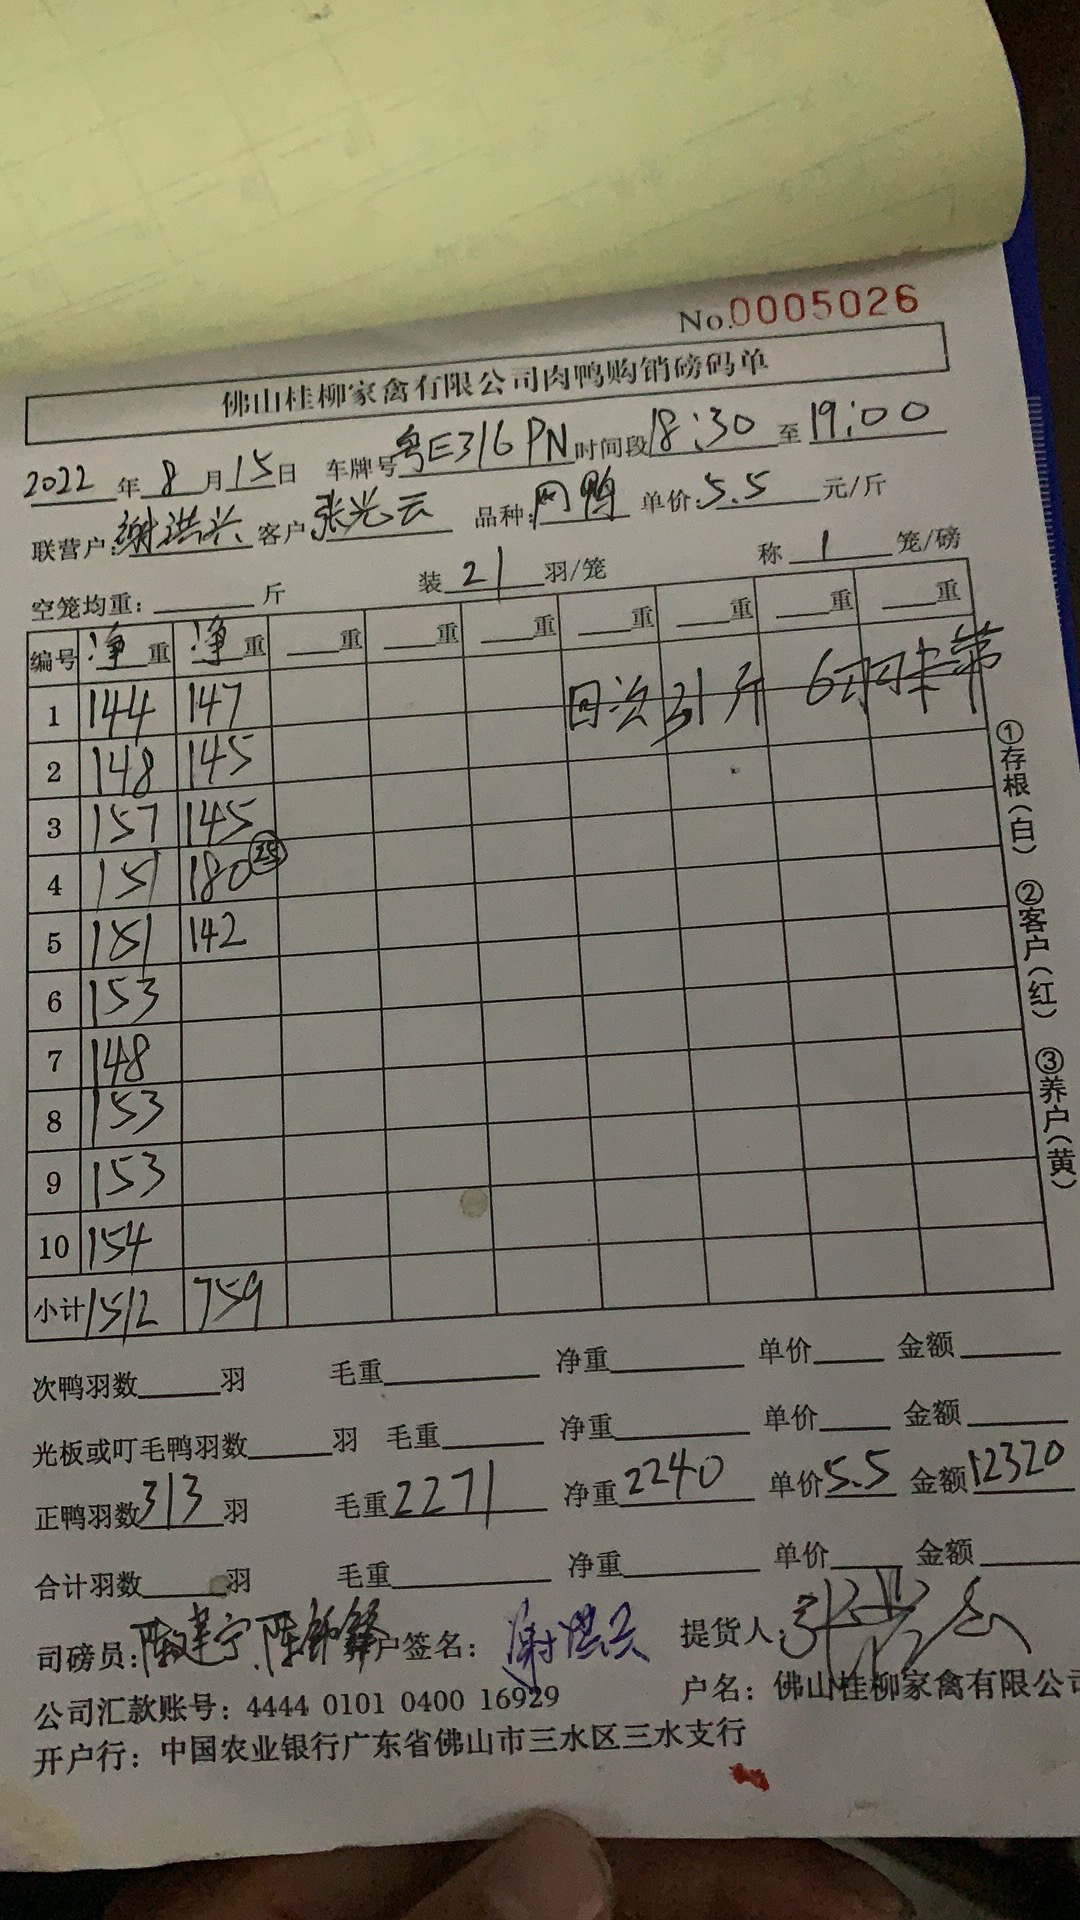 No.0005026
佛山桂柳家禽有限公司肉鸭购销磅码单
2022年8月15日 车牌号粤E316PN时间段18:30至19:00
联营户:谢洪兴 客户张光云 品种: 单价:5.5元/斤
空笼均重:斤 装21羽/笼 称1笼/磅
编号 净重 净重 重 重 重 重 重 重 重
1 144 147 回次31斤
2 148 145
3 157 145
4 151 180 25
5 151 142
6 153
7 148
8 153
9 153
10 154
小计 1512 759
①存根(白) ②客户(红) ③养户(黄)
次鸭羽数羽 毛重 净重 单价 金额
光板或叮毛鸭羽数羽 毛重 净重 单价 金额
正鸭羽数313羽 毛重2271 净重2240 单价5.5 金额12320
合计羽数羽 毛重 净重 单价 金额
司磅员:陈建宁 户签名:谢洪兴 提货人:张光云
公司汇款账号:4444 0101 0400 16929 户名:佛山桂柳家禽有限公司
开户行:中国农业银行广东省佛山市三水区三水支行